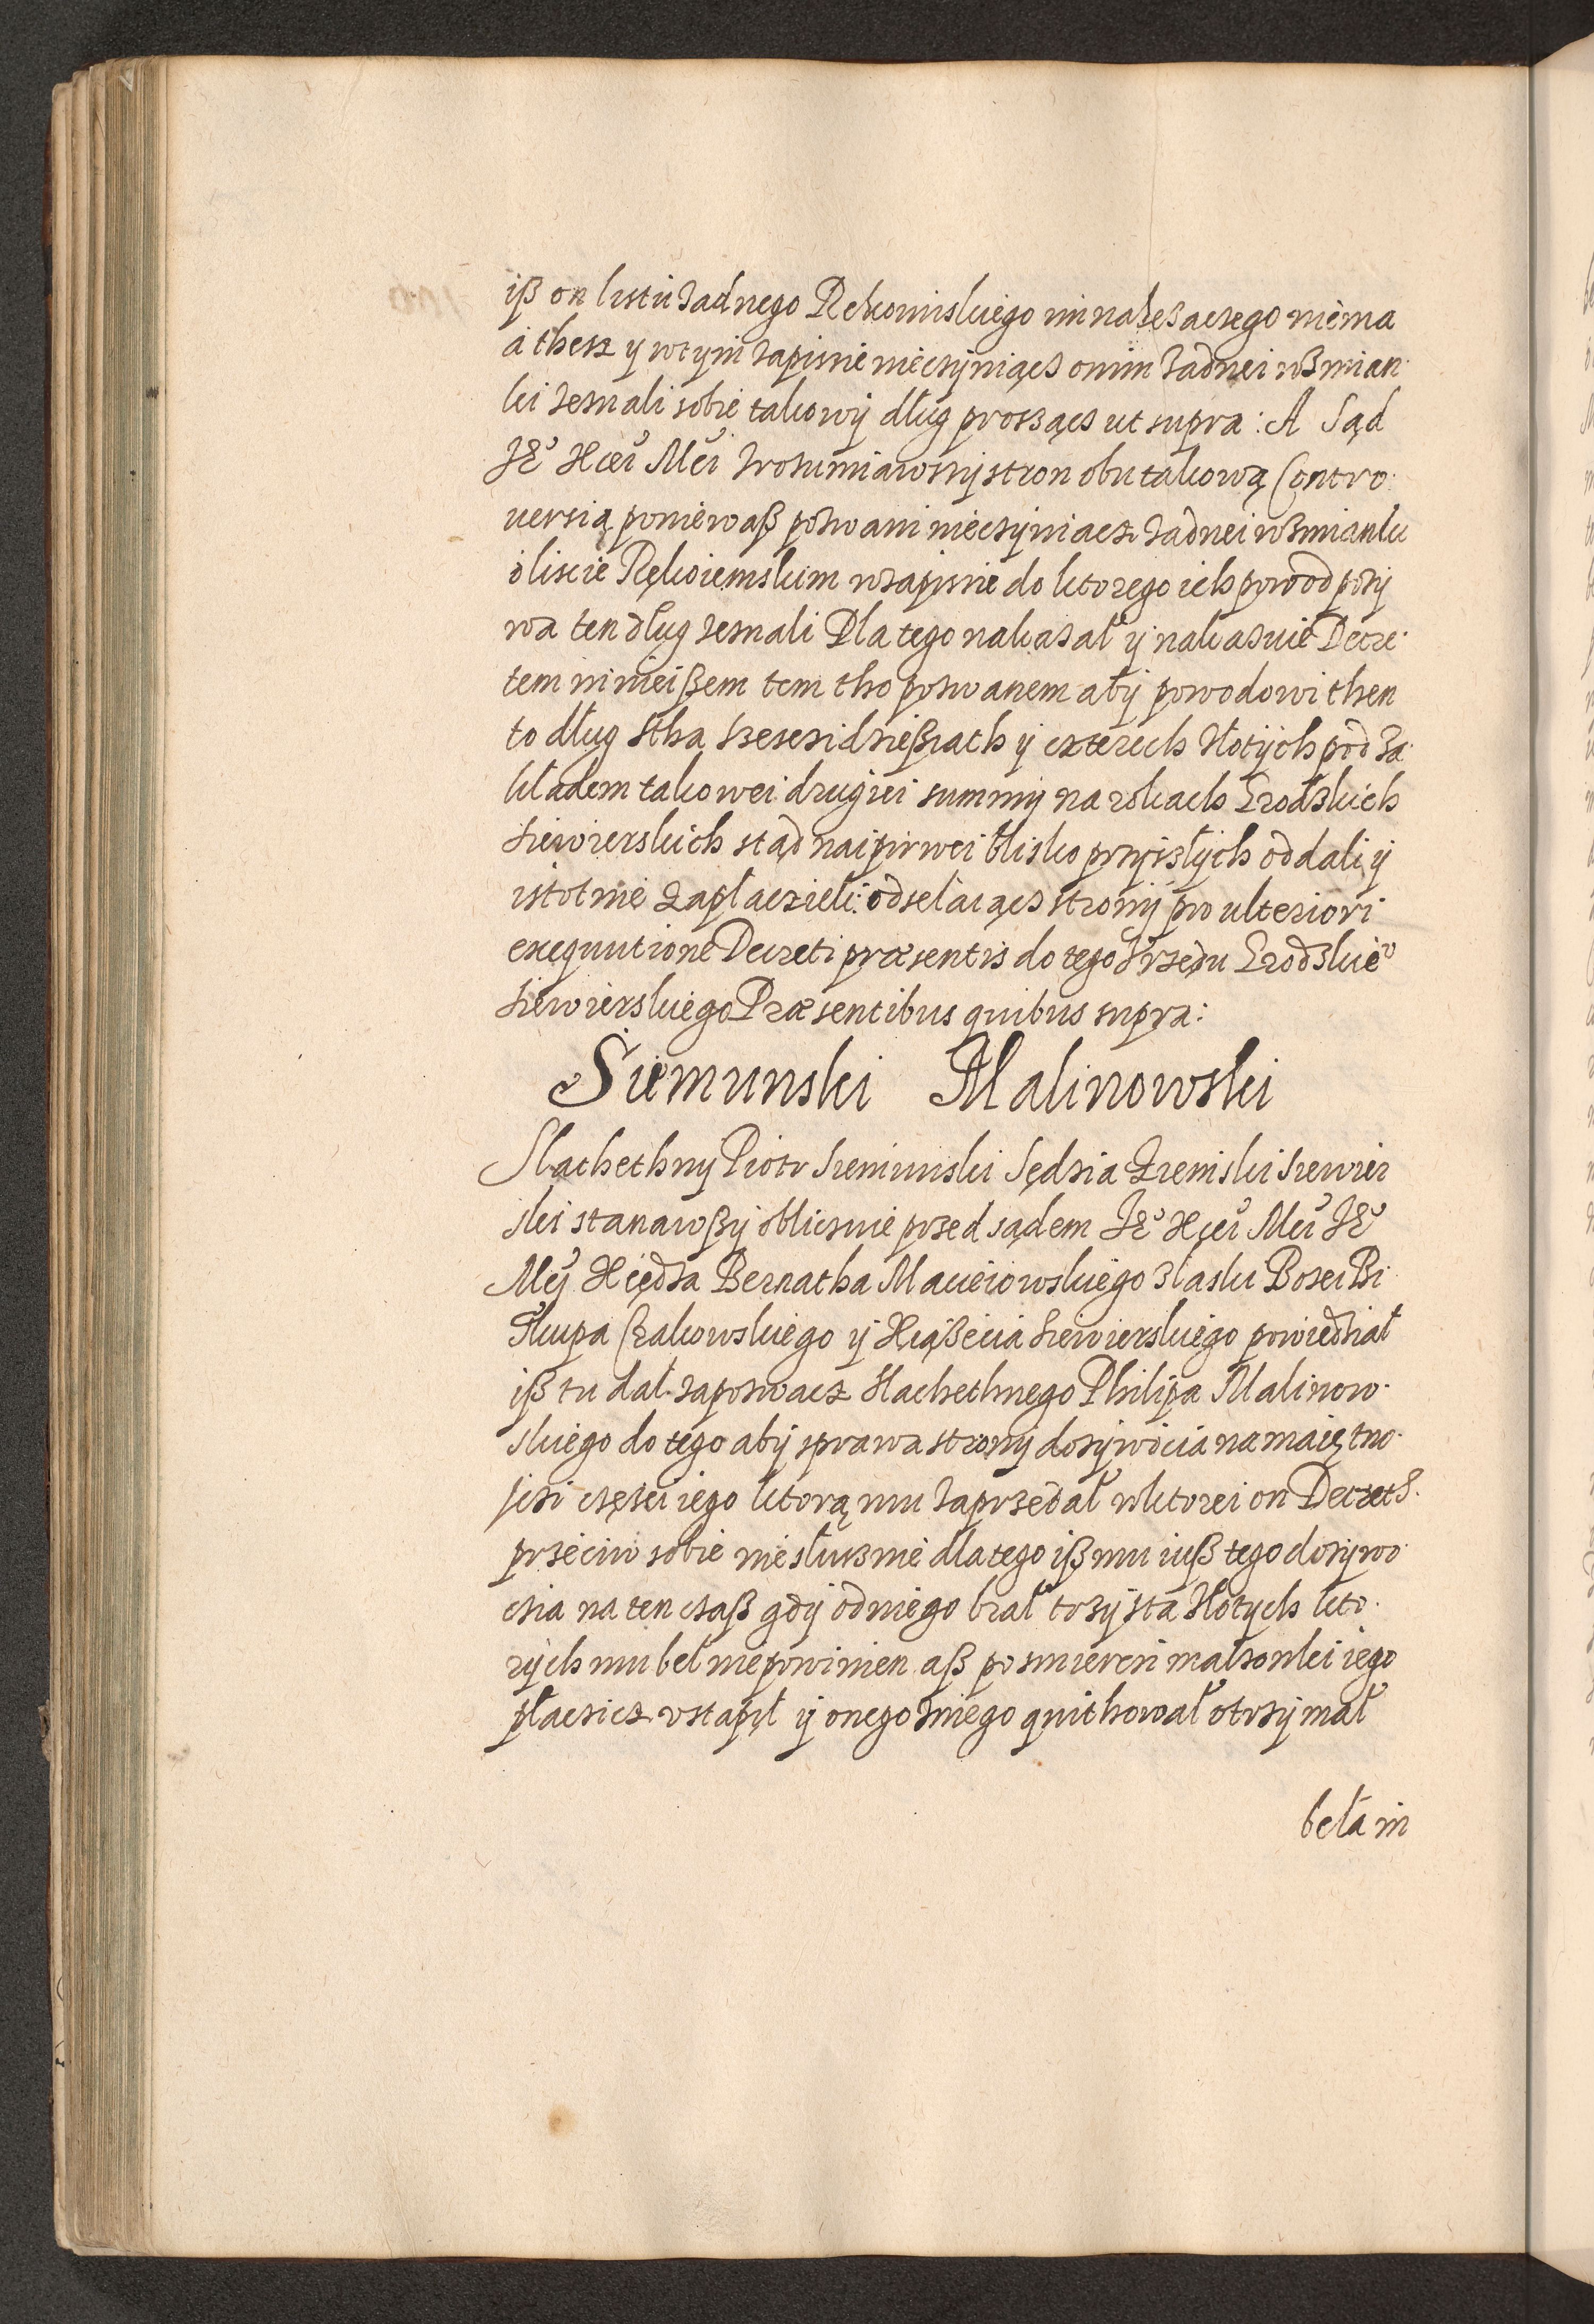 iß on listu zadnego Rekomiskiego nina zęzaczego niema
a thesz y wtym zapissie nieczyniącz onim zadnei wzmian
ki zesnali sobie takowy dług proszącz ut supra : A Sąd
Je° Xcei Mci zrozumiawssy stron obu takową Contro
uersią poniewaß poswani nieczyniacz zadnei wzmianki
o liscie Rękoiemskim wzapissie do ktorego ich powod pozy
wa ten dług zesnali Dla tego nakazał y nakazuie Decre
tem ninieißem tem tho poswanem aby powodowi then
to dług Stha szesczidzießiath y czterech złotych pod za
kładem takowei drugiei summy na rokach Grodzkich
Siewierskich stąd naipirwei blisko przyszłych oddali y
istotnie zapłaczieli : odsełaiącz strony pro ulteriori
exequutione Decreti præsentis do tego Vrzędu Grodzkie°
Siewierskiego Præsentibus quibus supra :
Siemunski Malinowski
Slachethny Piotr Siemunski Sędzia Ziemski Siewier
ski stanawßy oblicznie przed sądem Je° Xcei Mci Je°
Mci Xiędza Bernatha Macieiowskiego złaski Bozei Bi
skupa Crakowskiego y Xiążecia Siewierskiego powiedział
iß tu dał zapozwacz slachethnego Philipa Malinow
skiego do tego aby sprawa strony dozywocia na maiętno
sczi częsci iego ktorą mu zaprzedał wktorei on Decreth
przeciw sobie niesłusznie dlatego iß mu iuß tego dozywo
czia na ten czaß gdy odniego brał trzysta złotych kto
rych mu beł niepowinien aß po smierczi małzonki iego
płaczicz vstąpił y onego zniego quithował otrzymał
beła m